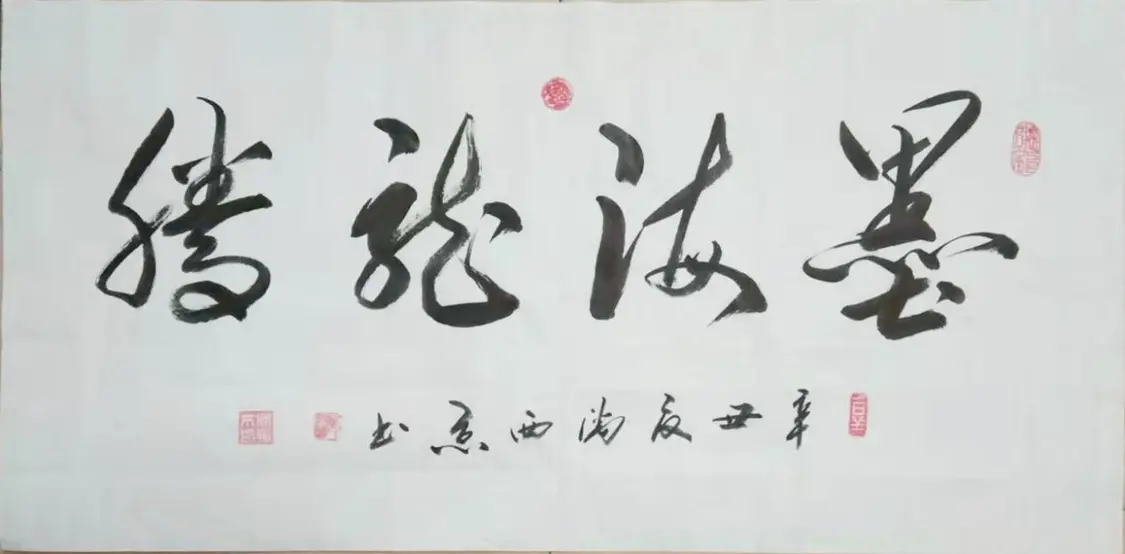 墨海龍騰
辛丑夏西书